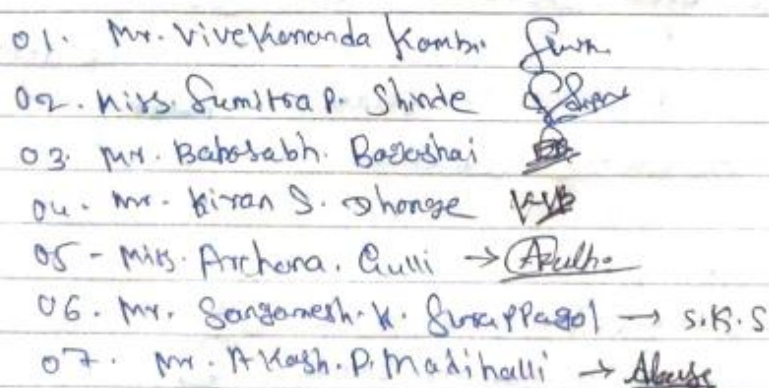 01. Mr. Vivekananda Kambi
02. Miss. Sumitra P. Shinde
03. Mr. Babasabh. Bagashai
04. Mr. Kiran S. Dhonge
05 - Miss. Archana. Gulli →
06. Mr. Sangamesh. K. Surappagol → S.K.S
07. Mr. Akash. P. Madihalli →